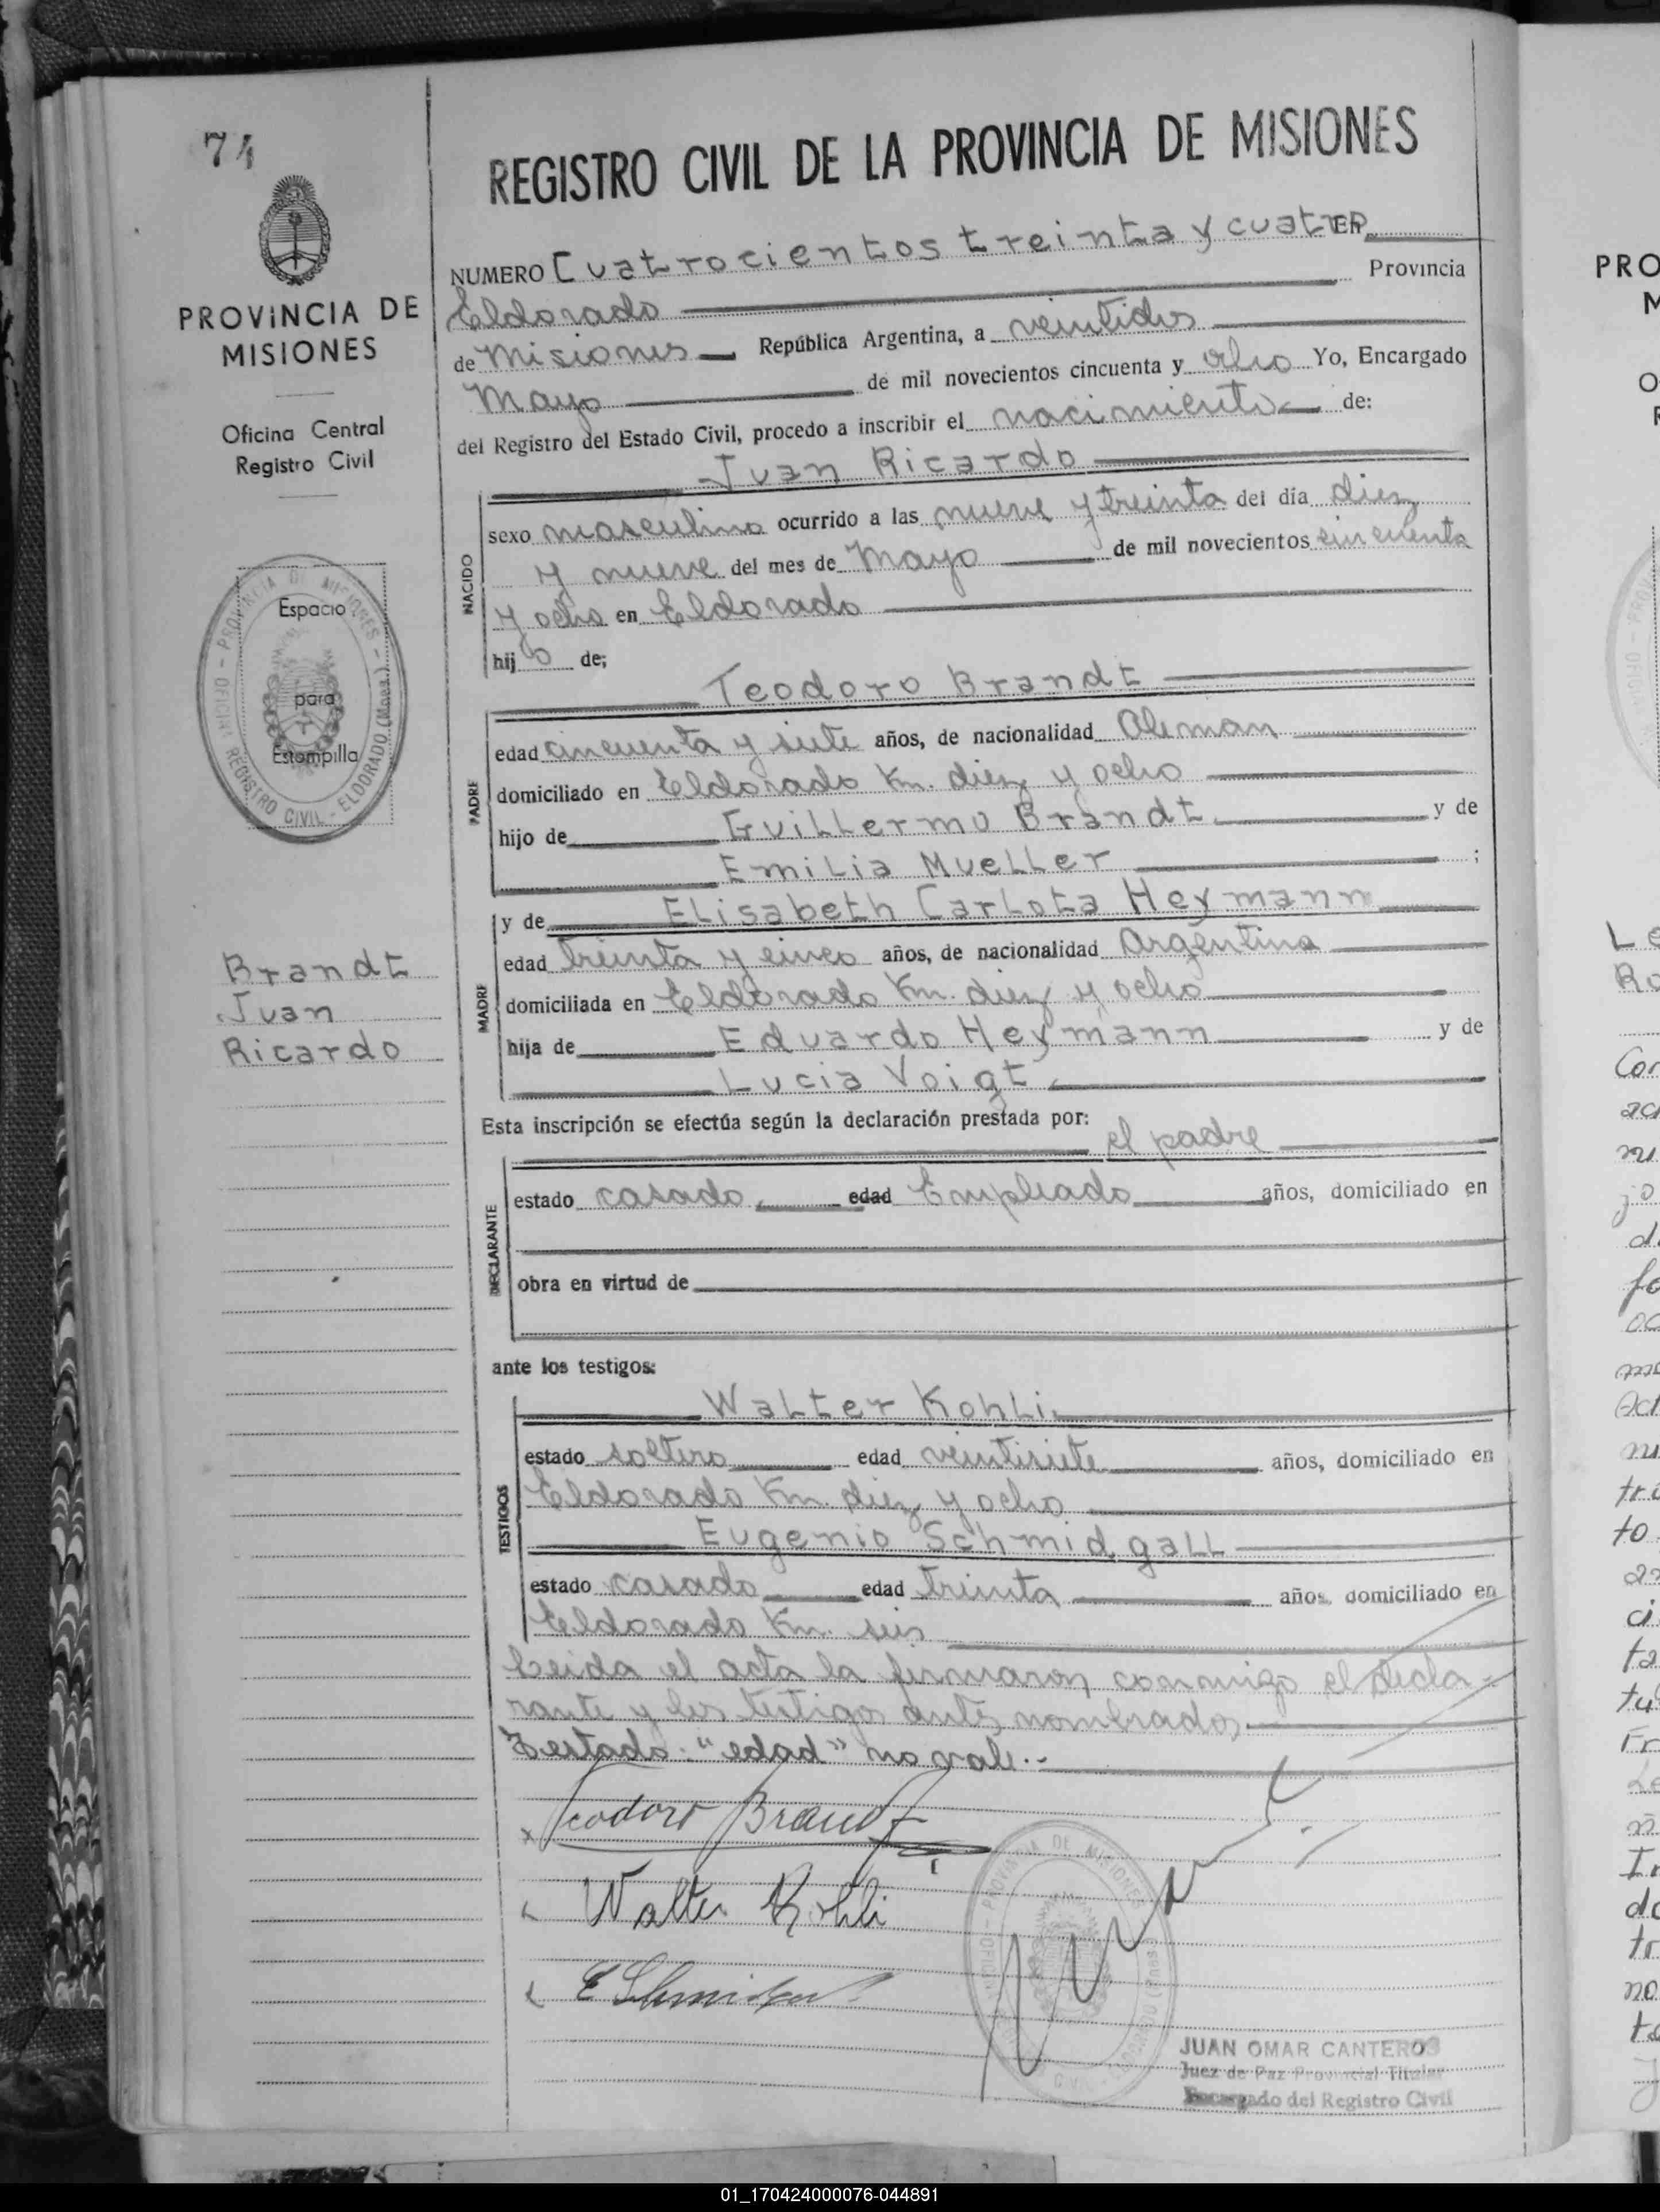 74
PROVINCIA DE
MISIONES
Oficina Central
Registro Civil
Espacio
para
Estampilla
OFICINA REGISTRO CIVIL - ELDORADO (Mnes.) - PROVINCIA DE MISIONES -
Brandt
Juan
Ricardo
REGISTRO CIVIL DE LA PROVINCIA DE MISIONES
NUMERO Cuatrocientos treinta y cuatro EN
Eldorado Provincia
de Misiones República Argentina, a veintidos
Mayo de mil novecientos cincuenta y ocho Yo, Encargado
del Registro del Estado Civil, procedo a inscribir el nacimiento de:
Juan Ricardo
NACIDO
sexo masculino ocurrido a las nueve y treinta del día diez
y nueve del mes de Mayo de mil novecientos cincuenta
y ocho en Eldorado
hijo de;
Teodoro Brandt
PADRE
edad cincuenta y siete años, de nacionalidad Aleman
domiciliado en Eldorado Km. diez y ocho
hijo de Guillermo Brandt y de
Emilia Mueller ;
y de Elisabeth Carlota Heymann
MADRE
edad treinta y cinco años, de nacionalidad Argentina
domiciliada en Eldorado Km. diez y ocho
hija de Eduardo Heymann y de
Lucia Voigt
Esta inscripción se efectúa según la declaración prestada por:
el padre
DECLARANTE
estado casado, edad Empleado años, domiciliado en
obra en virtud de
ante los testigos:
Walter Kohli.
TESTIGOS
estado soltero edad veintisiete años, domiciliado en
Eldorado Km. diez y ocho
Eugenio Schmidgall
estado casado edad treinta años, domiciliado en
Eldorado Km. seis
Leida el acta la firmaron conmigo el decla-
rante y los testigos antes nombrados.
Testado: "edad" no vale.-
Teodoro Brandt
Walter Kohli
PROVINCIA DE MISIONES
JUAN OMAR CANTEROS
Juez de Paz Provincial Titular
Encargado del Registro Civil
PRO
M
01_170424000076-044891